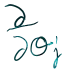 ∂
∂θj